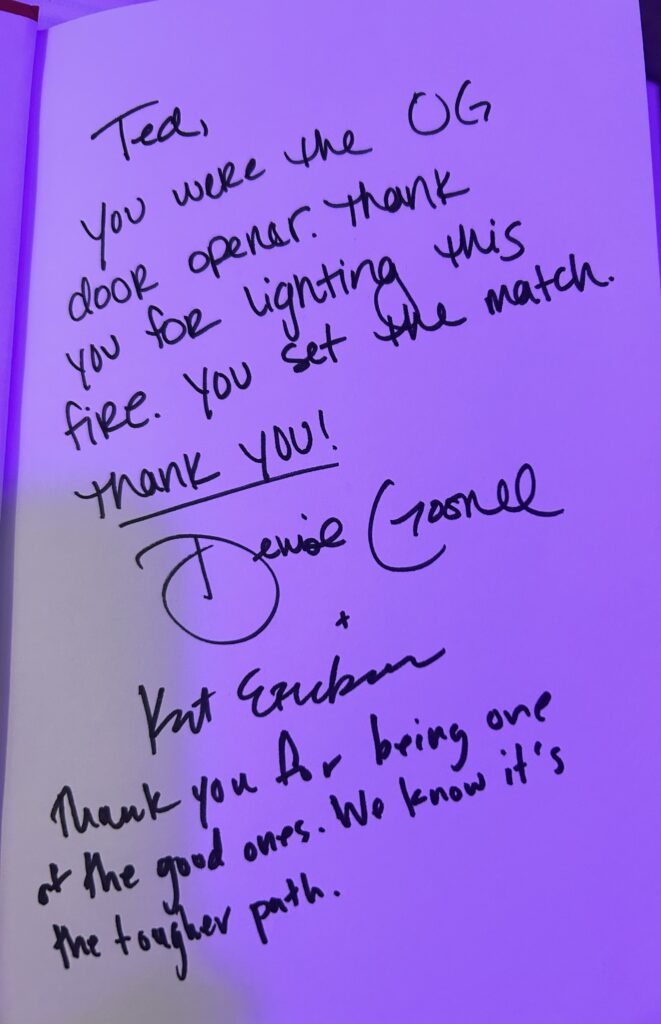 Ted,
you were the OG
door opener. Thank
you for lighting this
fire. you set the match.
thank you!
Denise Gosnell
+
Kat Ericksen
Thank you for being one
of the good ones. We know it's
the tougher path.